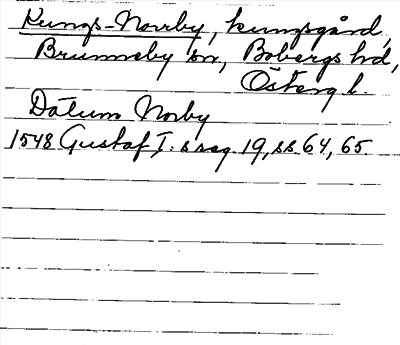 Kungs-Norrby, kungsgård,
Brunneby sn, Bobergs hd,
Österg l.
Datum Norby
1548 Gustaf I:s reg. 19, ss 64, 65.